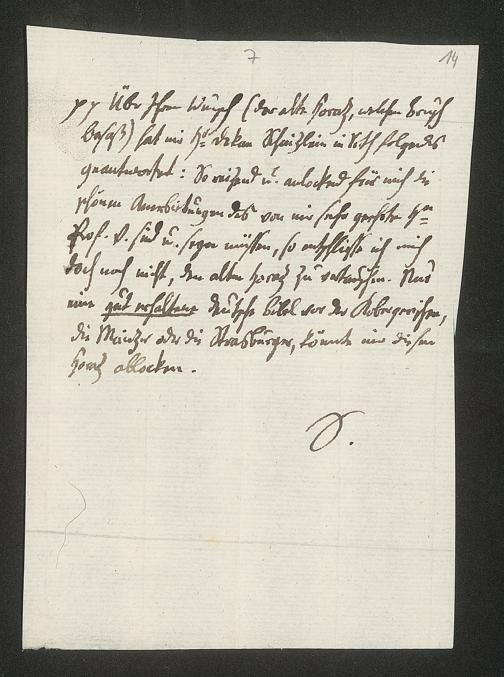 7
14
pp Über Ihren Wunsch (der alte Horaz, welchen
besaß) hat mir Hr Dekan in folgendes
geantwortet: So reizend u. anlockend für mich die
schönen Anerbietungen des von mir sehr geehrten Hrn
Prof. V. sind u. seyn müssen, so entschließe ich mich
doch noch nicht, den alten Horaz zu vertauschen. Nur
eine gut erhaltene deutsche Bibel vor der Kobergerischen,
die Mainzer oder die Strasburger, könnte mir diesen
Horaz ablocken.